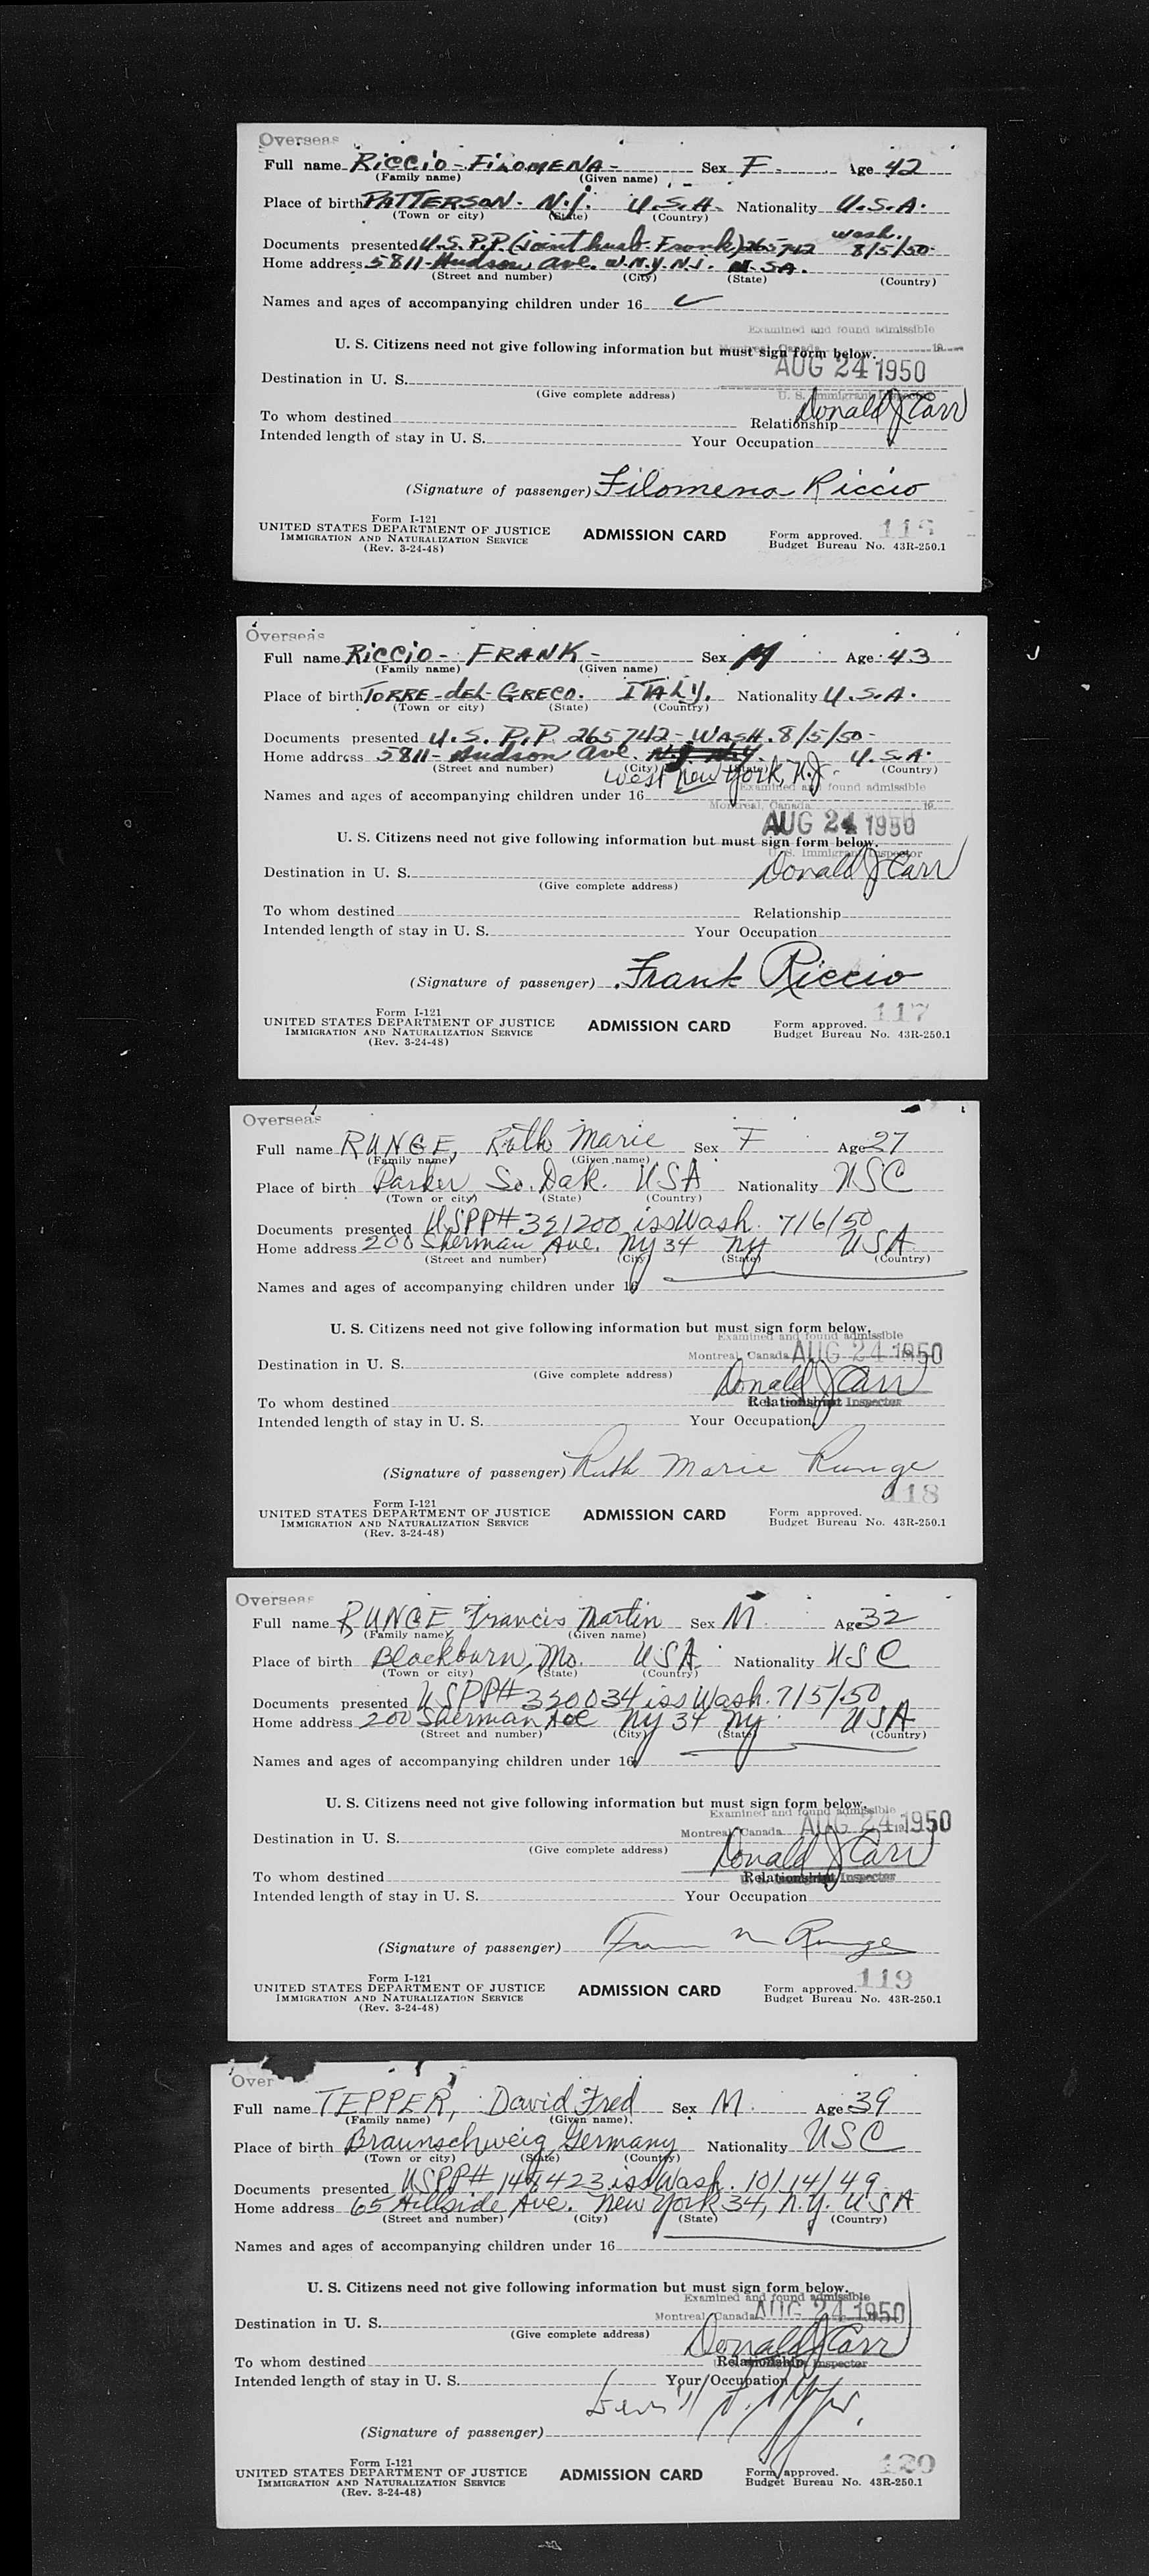 Overseas
Full name Riccio - Filomena - Sex F. Age 42
(Family name) (Given name)
Place of birth PATTERSON. N.J. U.S.A. Nationality U.S.A.
(Town or city) (State) (Country)
wash.
Documents presented U.S.P.P. (joint husb. Frank) 265742 8/5/50-
Home address 5811- Hudson ave. W.N.Y. N.J. U.S.A.
(Street and number) (City) (State) (Country)
Names and ages of accompanying children under 16 ✓
Examined and found admissible
Montreal, Canada 19
U. S. Citizens need not give following information but must sign form below.
AUG 24 1950
Destination in U. S.
(Give complete address) U. S. Immigrant Inspector
Donald J Carr
To whom destined Relationship
Intended length of stay in U. S. Your Occupation
(Signature of passenger) Filomena Riccio
Form I-121
UNITED STATES DEPARTMENT OF JUSTICE
IMMIGRATION AND NATURALIZATION SERVICE
(Rev. 3-24-48)
ADMISSION CARD
Form approved.
Budget Bureau No. 43R-250.1
Overseas
Full name Riccio - FRANK - Sex M Age 43
(Family name) (Given name)
Place of birth TORRE-del-GRECO. ITALY. Nationality U.S.A.
(Town or city) (State) (Country)
Documents presented U.S. P.P. 265742 - WASH. 8/5/50-
Home address 5811- Hudson ave. N.J. N.Y. U.S.A.
(Street and number) (City) (State) (Country)
West New York, N.J.
Names and ages of accompanying children under 16
Examined and found admissible
Montreal, Canada 19
AUG 24 1950
U. S. Citizens need not give following information but must sign form below.
U. S. Immigrant Inspector
Destination in U. S. Donald J Carr
(Give complete address)
To whom destined Relationship
Intended length of stay in U. S. Your Occupation
(Signature of passenger) Frank Riccio
117
Form I-121
UNITED STATES DEPARTMENT OF JUSTICE
IMMIGRATION AND NATURALIZATION SERVICE
(Rev. 3-24-48)
ADMISSION CARD
Form approved.
Budget Bureau No. 43R-250.1
Overseas
Full name RUNGE, Ruth Marie Sex F Age 27
(Family name) (Given name)
Place of birth Parker So. Dak. USA Nationality USC
(Town or city) (State) (Country)
Documents presented USPP# 321200 iss Wash. 7/6/50
Home address 200 Sherman Ave. NY 34 NY USA
(Street and number) (City) (State) (Country)
Names and ages of accompanying children under 16
U. S. Citizens need not give following information but must sign form below.
Examined and found admissible
Montreal, Canada AUG 24 1950
Destination in U. S.
(Give complete address) Donald J Carr
To whom destined Relationship Inspector
Intended length of stay in U. S. Your Occupation
(Signature of passenger) Ruth Marie Runge
118
Form I-121
UNITED STATES DEPARTMENT OF JUSTICE
IMMIGRATION AND NATURALIZATION SERVICE
(Rev. 3-24-48)
ADMISSION CARD
Form approved.
Budget Bureau No. 43R-250.1
Overseas
Full name RUNGE Francis Martin Sex M Age 32
(Family name) (Given name)
Place of birth Blackburn, Mo. USA Nationality USC
(Town or city) (State) (Country)
Documents presented USPP# 320034 iss Wash. 7/5/50
Home address 200 Sherman Ave NY 34 NY USA
(Street and number) (City) (State) (Country)
Names and ages of accompanying children under 16
U. S. Citizens need not give following information but must sign form below.
Examined and found admissible
Montreal, Canada AUG 24 1950
Destination in U. S.
(Give complete address) Donald J Carr
To whom destined Relationship Inspector
Intended length of stay in U. S. Your Occupation
(Signature of passenger) Fran M Runge
119
Form I-121
UNITED STATES DEPARTMENT OF JUSTICE
IMMIGRATION AND NATURALIZATION SERVICE
(Rev. 3-24-48)
ADMISSION CARD
Form approved.
Budget Bureau No. 43R-250.1
Over
Full name TEPPER, David Fred Sex M Age 39
(Family name) (Given name).
Place of birth Braunschweig Germany Nationality USC
(Town or city) (State) (Country)
Documents presented USPP# 148423 iss Wash. 10/14/49
Home address 65 Hillside Ave. New York 34, N.Y. USA
(Street and number) (City) (State) (Country)
Names and ages of accompanying children under 16
U. S. Citizens need not give following information but must sign form below.
Examined and found admissible
Montreal, Canada AUG 24 1950
Destination in U. S.
(Give complete address) Donald J Carr
To whom destined Relationship Inspector
Intended length of stay in U. S. Your Occupation
(Signature of passenger)
120
Form I-121
UNITED STATES DEPARTMENT OF JUSTICE
IMMIGRATION AND NATURALIZATION SERVICE
(Rev. 3-24-48)
ADMISSION CARD
Form approved.
Budget Bureau No. 43R-250.1